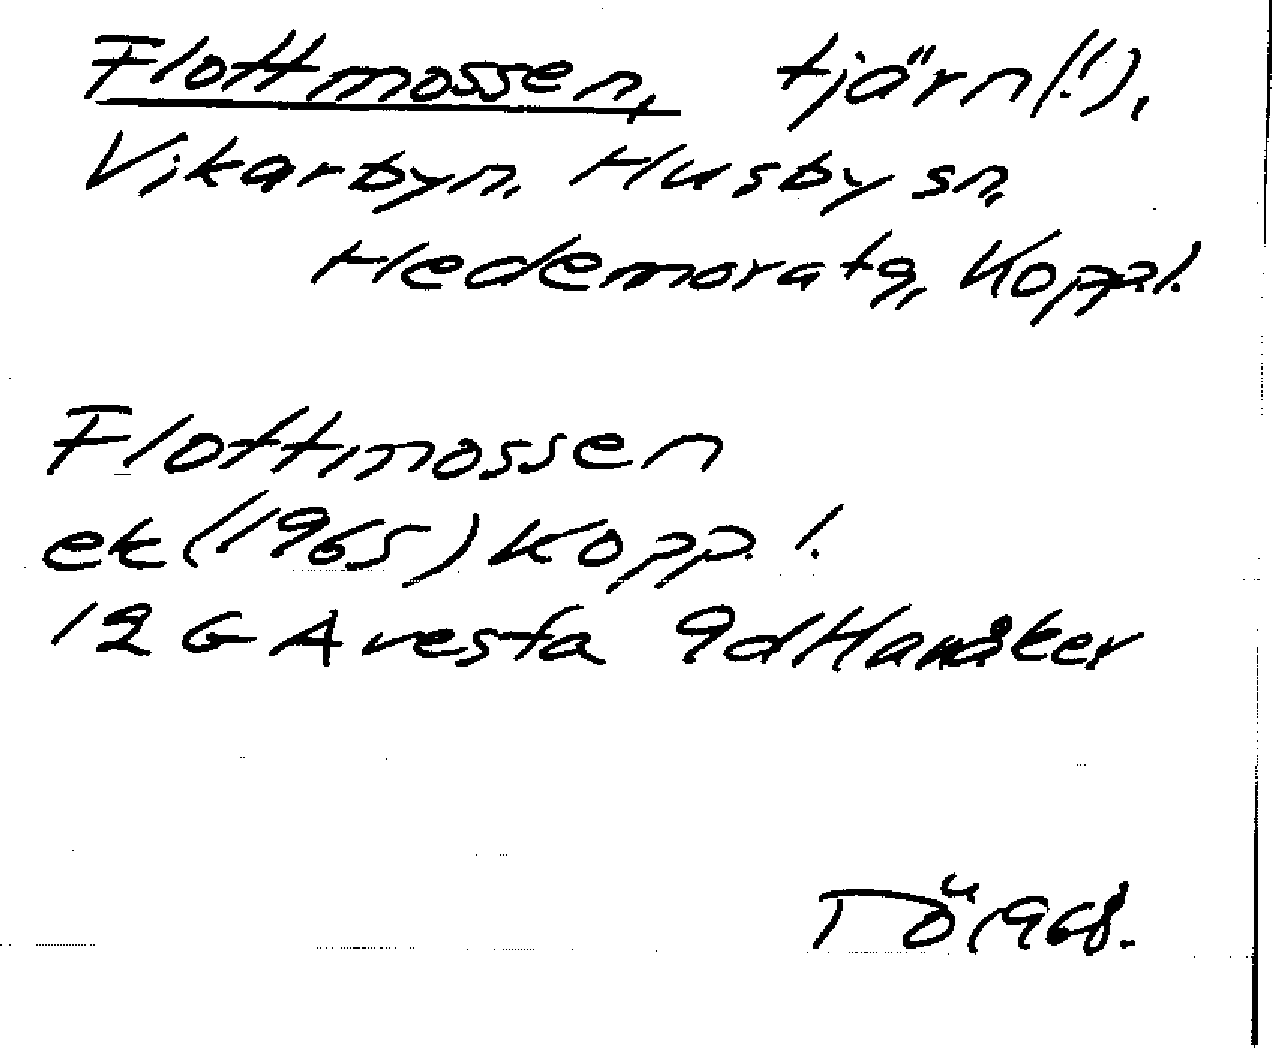 Flottmossen, tjärn(!),
Vikarbyn. Husby sn,
Hedemora tg, Kopp.l.
Flottmossen
ek (1965) Kopp. l.
12 G Avesta 9d Hanåker
TÖ 1968.